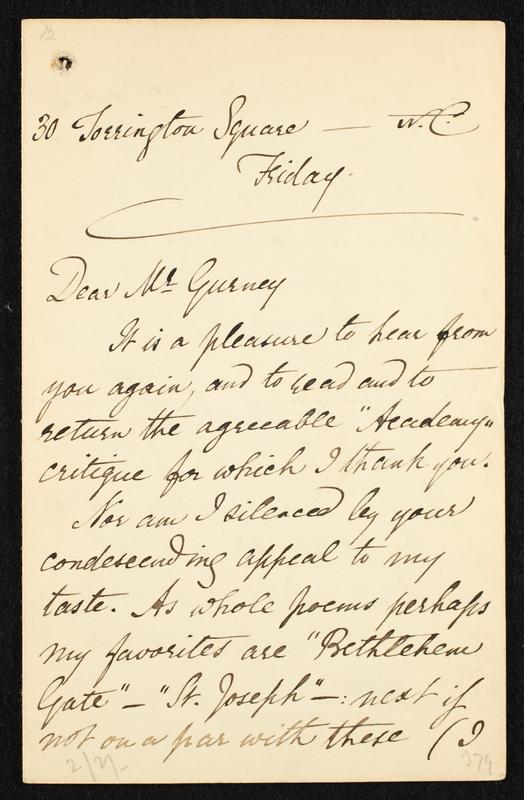 12
30 Torrington Square — W.C.
Friday.
Dear Mr. Gurney
It is a pleasure to hear from
you again, and to read and to
return the agreeable "Academy"
critique for which I thank you.
Nor am I silenced by your
condescending appeal to my
taste. As whole poems perhaps
my favorites are "Bethlehem
Gate" – "St. Joseph" –: next if
not on a par with these (I
2/2/-
379